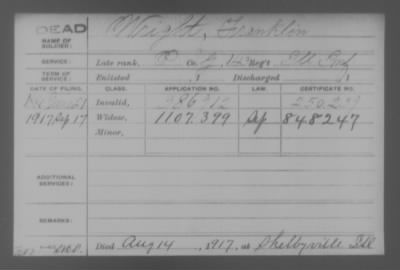 DEAD Wright, Franklin
NAME OF
SOLDIER:
SERVICE: Late rank, Co. G, 143 Reg't Ill Inf
TERM OF
SERVICE: Enlisted , 1 Discharged , 1
DATE OF FILING. CLASS. APPLICATION NO. LAW. CERTIFICATE NO.
Invalid, 986312
1917 Sep 17 Widow, 1107.399 848247
Minor,
ADDITIONAL
SERVICES:
REMARKS:
Died Aug 14, 1917, at Shelbyville Ill